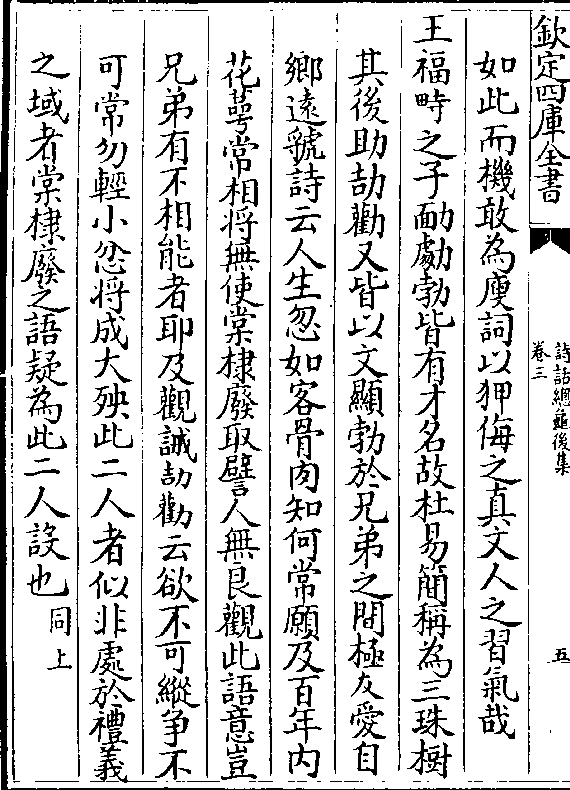 欽定四庫全書
詩話總龜後集
卷三
五
如此而機敢為廋詞以狎侮之真文人之習氣哉
王福畤之子勔勮勃皆有才名故杜易簡稱為三珠樹
其後助劼勸又皆以文顯勃於兄弟之間極友愛自
鄉還虢詩云人生忽如客骨肉知何常願及百年內
花萼常相將無使棠棣廢取譬人無良觀此語意豈
兄弟有不相能者耶及觀誡劼勸云欲不可縱爭不
可常勿輕小忿將成大殃此二人者似非處於禮義
之域者棠棣廢之語疑為此二人設也同上